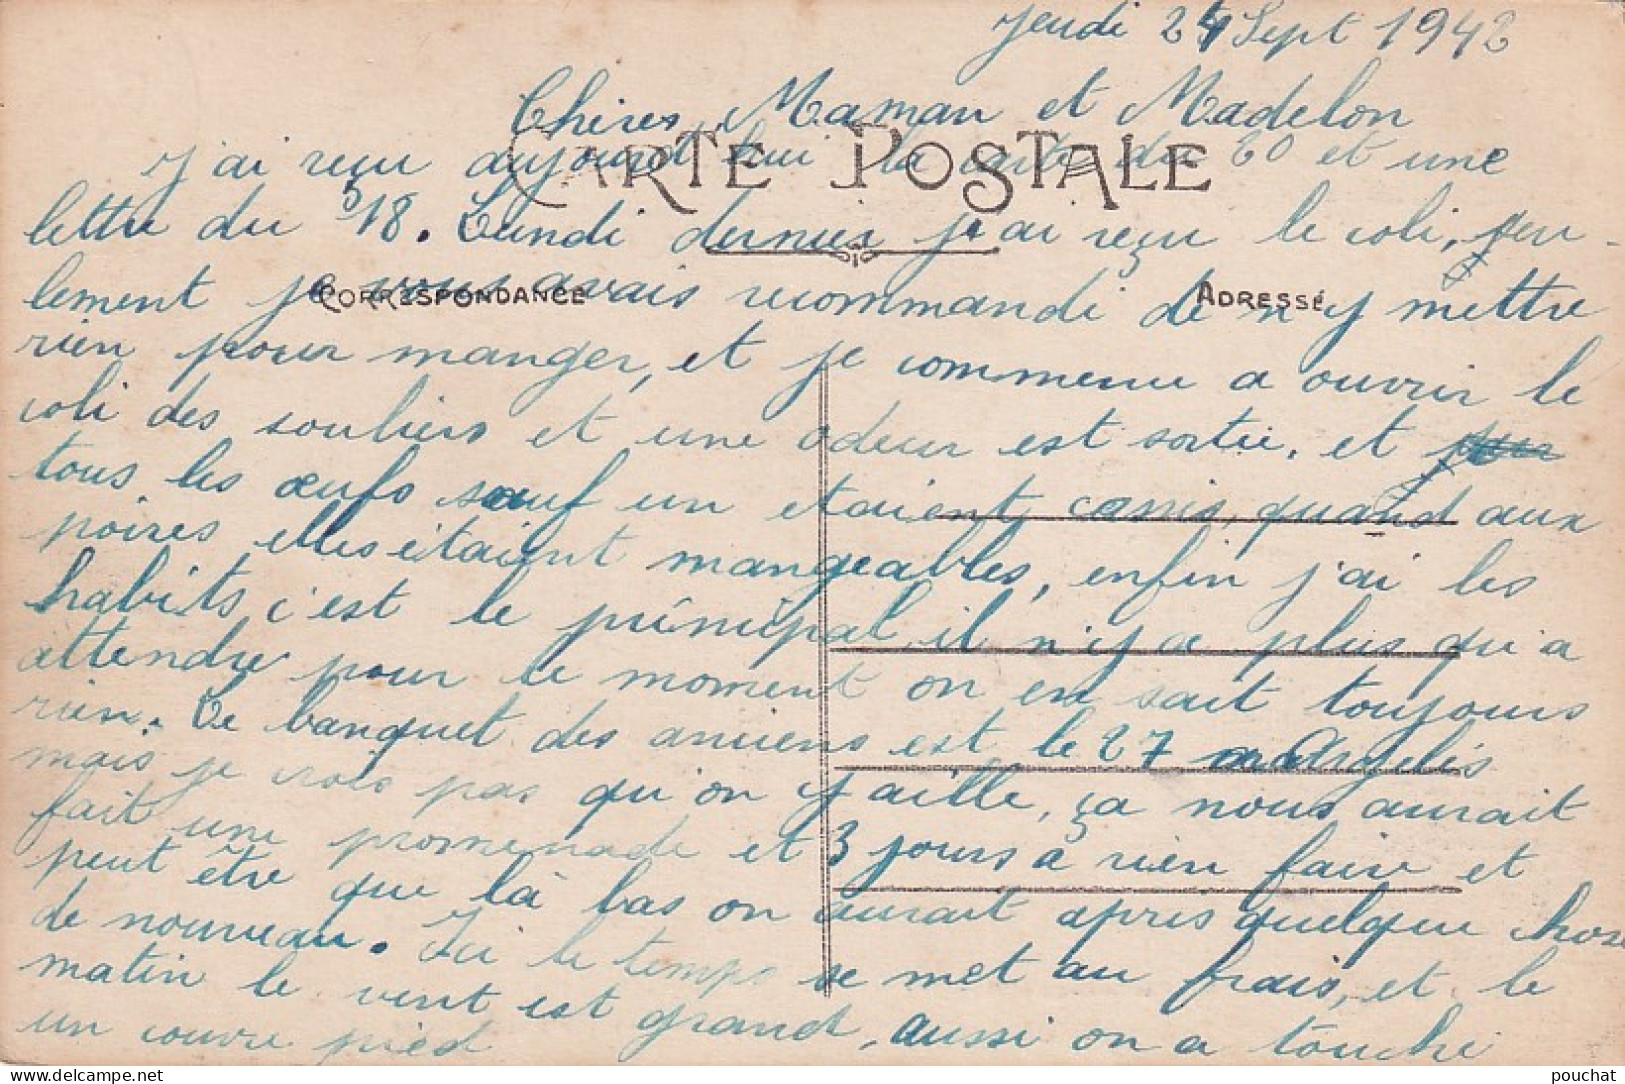 Jeudi 24 Sept 1942
Chères Maman et Madelon
CARTE POSTALE
J'ai reçu aujourd'hui la carte du 20 et une
lettre du 18. Lundi dernier j'ai reçu le coli, seu-
lement je vous avais recommandé de n'y mettre
CORRESPONDANCE
ADRESSE
rien pour manger, et je commence a ouvrir le
coli des souliers et une odeur est sortie, et
tous les œufs sauf un etaient cassis, quand aux
poires elles étaient mangeables, enfin j'ai les
habits, c'est le principal, il n'y a plus qu'a
attendre pour le moment on en sait toujours
rien. Le banquet des anciens est le 27 a Argelès
mais je crois pas qu'on y aille, ça nous aurait
fait une promenade et 3 jours à rien faire et
peut être que là bas on aurait apris quelque chose
de nouveau. Ici le temps se met au frais, et le
matin le vent est grand, aussi on a touché
un couvre pied
pouchat